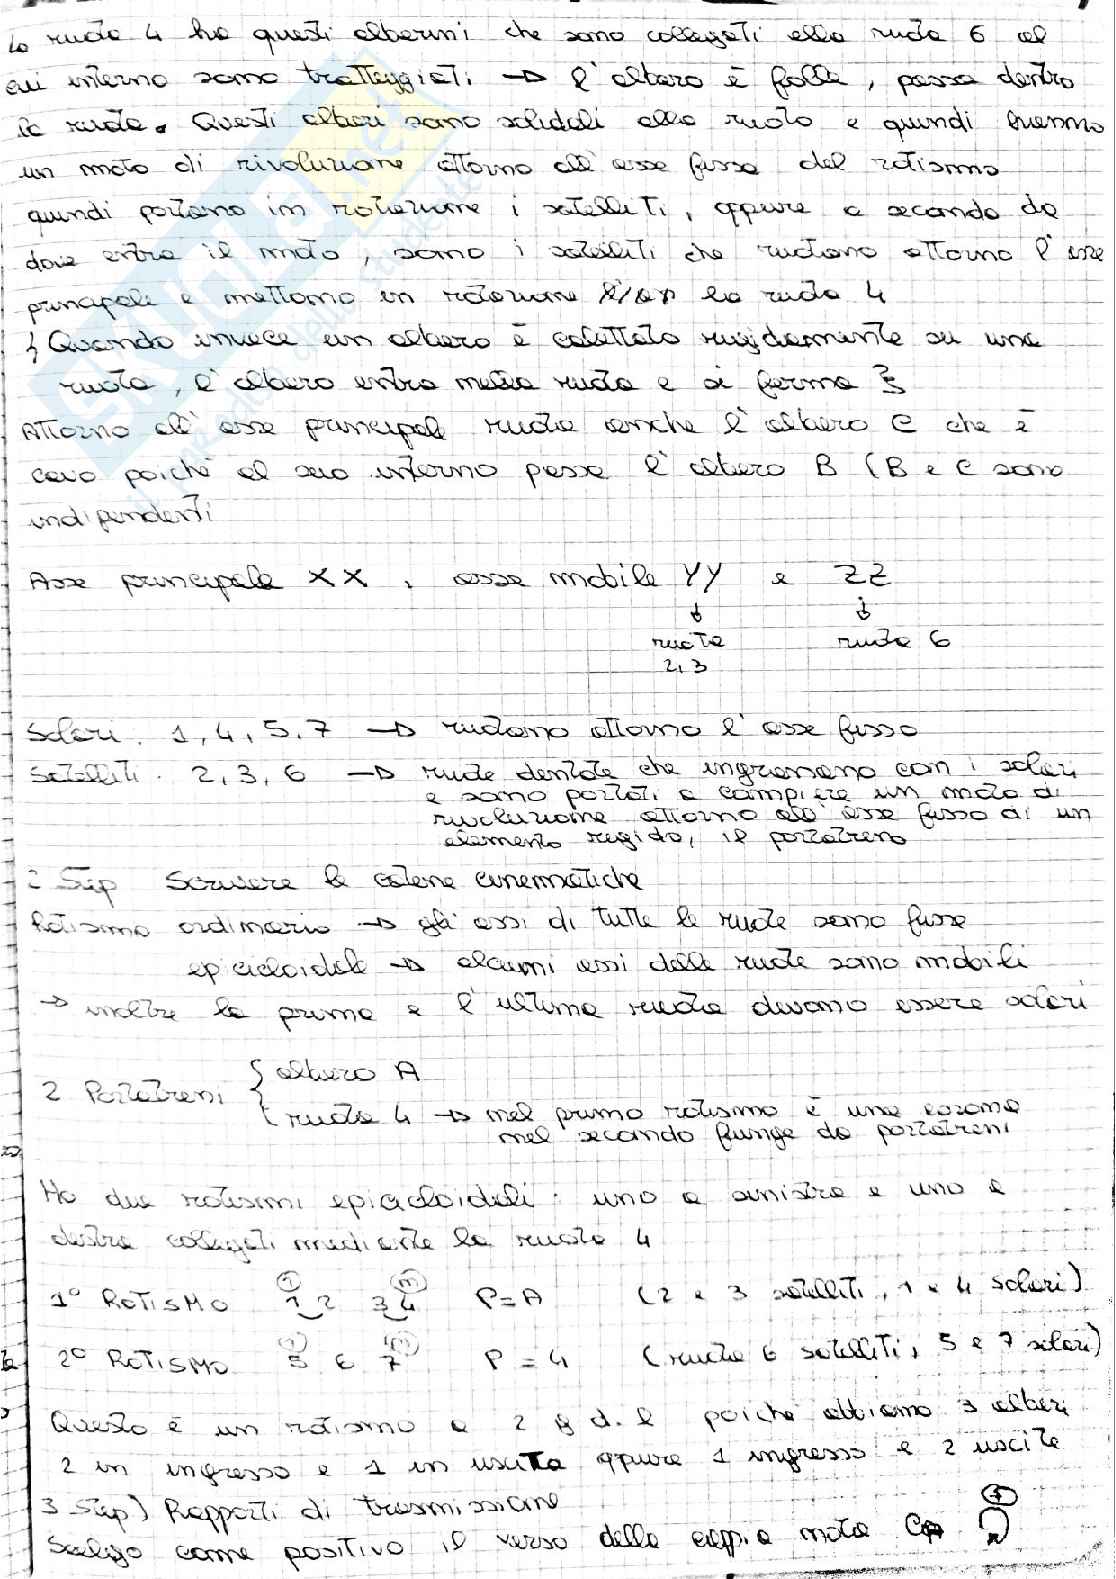 La ruota 4 ha questi alberini che sono collegati alla ruota 6 al
cui interno sono tratteggiati → l'albero è folle, passa dentro
la ruota. Questi alberi sono solidali alla ruota e quindi hanno
un moto di rivoluzione attorno all'asse fisso del rotismo
quindi portano in rotazione i satelliti, oppure a seconda da
dove entra il moto, sono i satelliti che ruotano attorno l'asse
principale e mettono in rotazione la ruota 4
{ Quando invece un albero è calettato rigidamente su una
ruota, l'albero entra nella ruota e si ferma }
Attorno all'asse principale ruota anche l'albero C che è
cavo poiché al suo interno passa l'albero B (B e C sono
indipendenti
Asse principale XX, asse mobile YY e ZZ
↓ ↓
ruote ruota 6
2,3
Solari: 1, 4, 5, 7 → ruotano attorno l'asse fisso
Satelliti: 2, 3, 6 → ruote dentate che ingranano con i solari
e sono portati a compiere un moto di
rivoluzione attorno all'asse fisso di un
elemento rigido, il portatreno
2 Step Scrivere le catene cinematiche
Rotismo ordinario → gli assi di tutte le ruote sono fisse
epicicloidale → alcuni assi delle ruote sono mobili
→ inoltre la prima e l'ultima ruota devono essere solari
2 Portatreni { albero A
ruota 4 → nel primo rotismo è una corona
nel secondo funge da portatreni
Ho due rotismi epicicloidali: uno a sinistra e uno a
destra collegati mediante la ruota 4
1° ROTISMO 1 2 3 4 P=A (2 e 3 satelliti, 1 e 4 solari)
2° ROTISMO 5 6 7 P=4 (ruota 6 satelliti, 5 e 7 solari)
Questo è un rotismo a 2 g d. l poiché abbiamo 3 alberi
2 in ingresso e 1 in uscita oppure 1 ingresso e 2 uscite
3 Step) Rapporti di trasmissione
Scelgo come positivo il verso della coppia mota